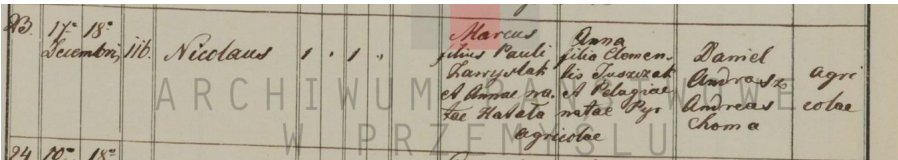 23. 17ª 18ª
Decembris 116. Nicolaus 1 . 1 "
Marcus
filius Pauli
Ławryslak
et Annae na-
tae Hatała
Anna
filia Clemen-
tis Tuszczak
et Pelagiae
natae Pyr
agricolae
Daniel
Andrasz,
Andreas
Choma
agri
colae
24. 10ª 18ª
ARCHIWUM PAŃSTWOWE
W PRZEMYŚLU